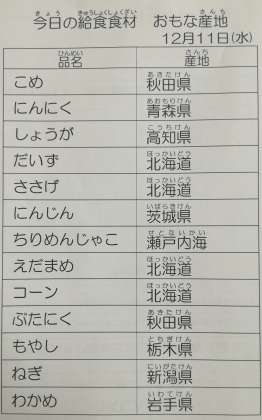 今日の給食食材　おもな産地
12月11日(水)
品名　産地
こめ　秋田県
にんにく　青森県
しょうが　高知県
だいず　北海道
ささげ　北海道
にんじん　茨城県
ちりめんじゃこ　瀬戸内海
えだまめ　北海道
コーン　北海道
ぶたにく　秋田県
もやし　栃木県
ねぎ　新潟県
わかめ　岩手県